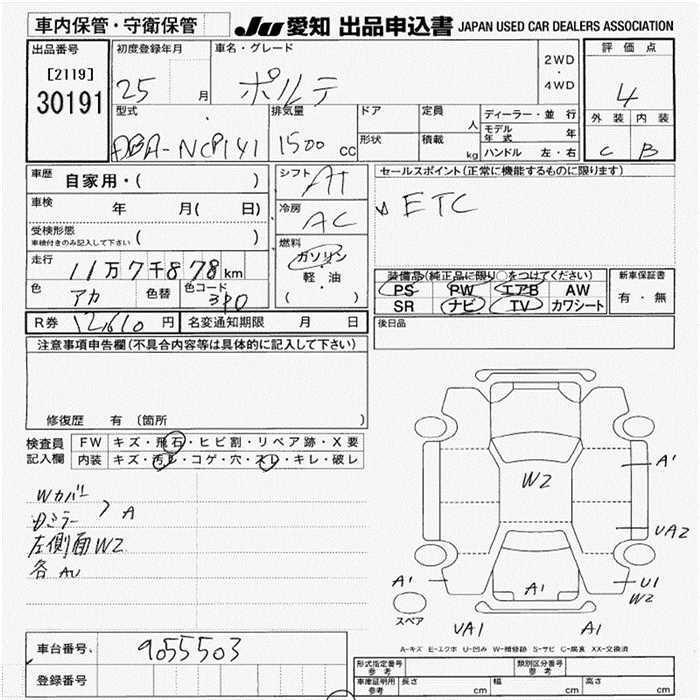 車内保管・守衛保管
JU 愛知 出品申込書 JAPAN USED CAR DEALERS ASSOCIATION
出品番号
[2119]
30191
初度登録年月
25 月
車名・グレード
ポルテ
2WD
・
4WD
評価点
4
外装 内装
C B
型式
DBA-NCP141
排気量
1500 cc
ドア
形状
定員
人
積載
kg
ディーラー・並行
モデル年式 年
ハンドル 左・右
車歴
自家用・( )
車検 年 月( 日)
受検形態
車検付きのみ記入して下さい ( )
走行
11万7千878km
色 アカ 色替 色コード 3P0
シフト
AT
冷房
AC
燃料
ガソリン
・
軽・油
・
( )
セールスポイント(正常に機能するものに限ります)
ETC
装備品(純正品に限り○をつけてください)
PS PW エアB AW
SR ナビ TV カワシート
新車保証書
有・無
R券 12610 円 名変通知期限 月 日
後日品
注意事項申告欄(不具合内容等は具体的に記入して下さい)
修復歴 有 〔箇所 〕
検査員記入欄
FW キズ・飛石・ヒビ割・リペア跡・X要
内装 キズ・汚レ・コゲ・穴・スレ・キレ・破レ
Wカバー
Dミラー
A
左側面W2
各AU
W2
A1
A'
UA2
U1
W2
A'
UA1
A1
スペア
A-キズ E-エクボ U-凹み W-補修跡 S-サビ C-腐食 XX-交換済
車台番号、 9055503
登録番号
形式指定番号 参考
類別区分番号 参考
車庫証明用 参考 長さ cm 幅 cm 高さ cm